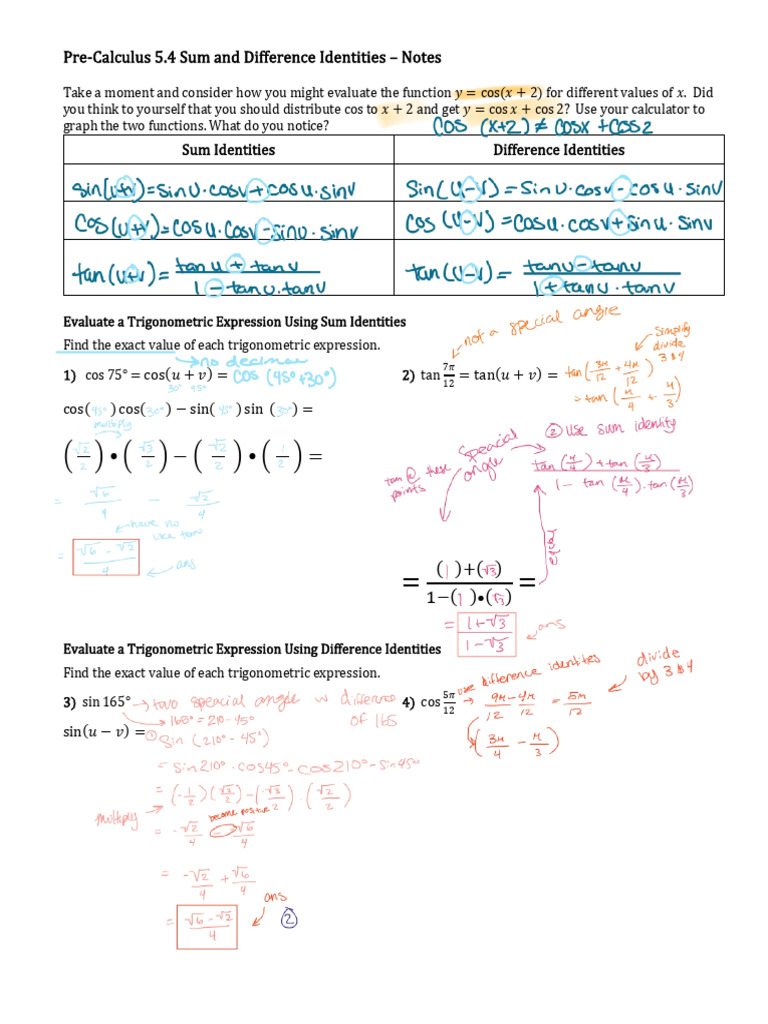 Pre-Calculus 5.4 Sum and Difference Identities – Notes
Take a moment and consider how you might evaluate the function y = cos(x + 2) for different values of x. Did
you think to yourself that you should distribute cos to x + 2 and get y = cos x + cos 2? Use your calculator to
graph the two functions. What do you notice? COS (x+2) ≠ cosx + cos2
Sum Identities
Difference Identities
sin(u+v)=sinu·cosv+cosu·sinv
Sin(u-v)=sinu·cosv-cosu·sinv
Cos(u+v)=cosu·cosv-sinu·sinv
Cos(u-v)=cosu·cosv+sinu·sinv
tan(u+v)= tanu + tanv / 1 - tanu.tanv
tan(u-v)= tanu-tanv / 1+tanu·tanv
Evaluate a Trigonometric Expression Using Sum Identities
Find the exact value of each trigonometric expression.
→ no decimal
1) cos 75° = cos(u + v) = cos (45°+30°)
30° 45°
cos(45°) cos(30°) − sin(45°) sin (30°)=
multiply
(√2/2) • (√3/2) − (√2/2) • (1/2) =
= √6/4 - √2/4
have no
= √6 - √2 / 4
ans
not a special angle
2) tan 7π/12 = tan(u + v) = tan(3π/12 + 4π/12)
Simplify
divide
3 & 4
= tan(π/4 + π/3)
② use sum identity
Speacial
angle
tan @ these
points
tan(π/4)+tan(π/3) / 1- tan(π/4).tan(π/3)
= (1)+(√3) / 1−(1)•(√3) =
= 1+√3 / 1-√3
ans
Evaluate a Trigonometric Expression Using Difference Identities
Find the exact value of each trigonometric expression.
3) sin 165° → two speacial angle w difference
of 165
→ 165° = 210 - 45°
sin(u − v) = ① Sin (210° - 45°)
= sin210° · cos45° - cos210° - sin45°
= (-1/2)(√2/2) - (-√3/2) · (√2/2)
multiply
become positive
= -√2/4 - -√6/4
= -√2/4 + √6/4
ans
= √6 - √2 / 4
②
4) cos 5π/12 → 9π/12 - 4π/12 = 5π/12
use difference identities
divide
by 3 & 4
(3π/4 - π/3)